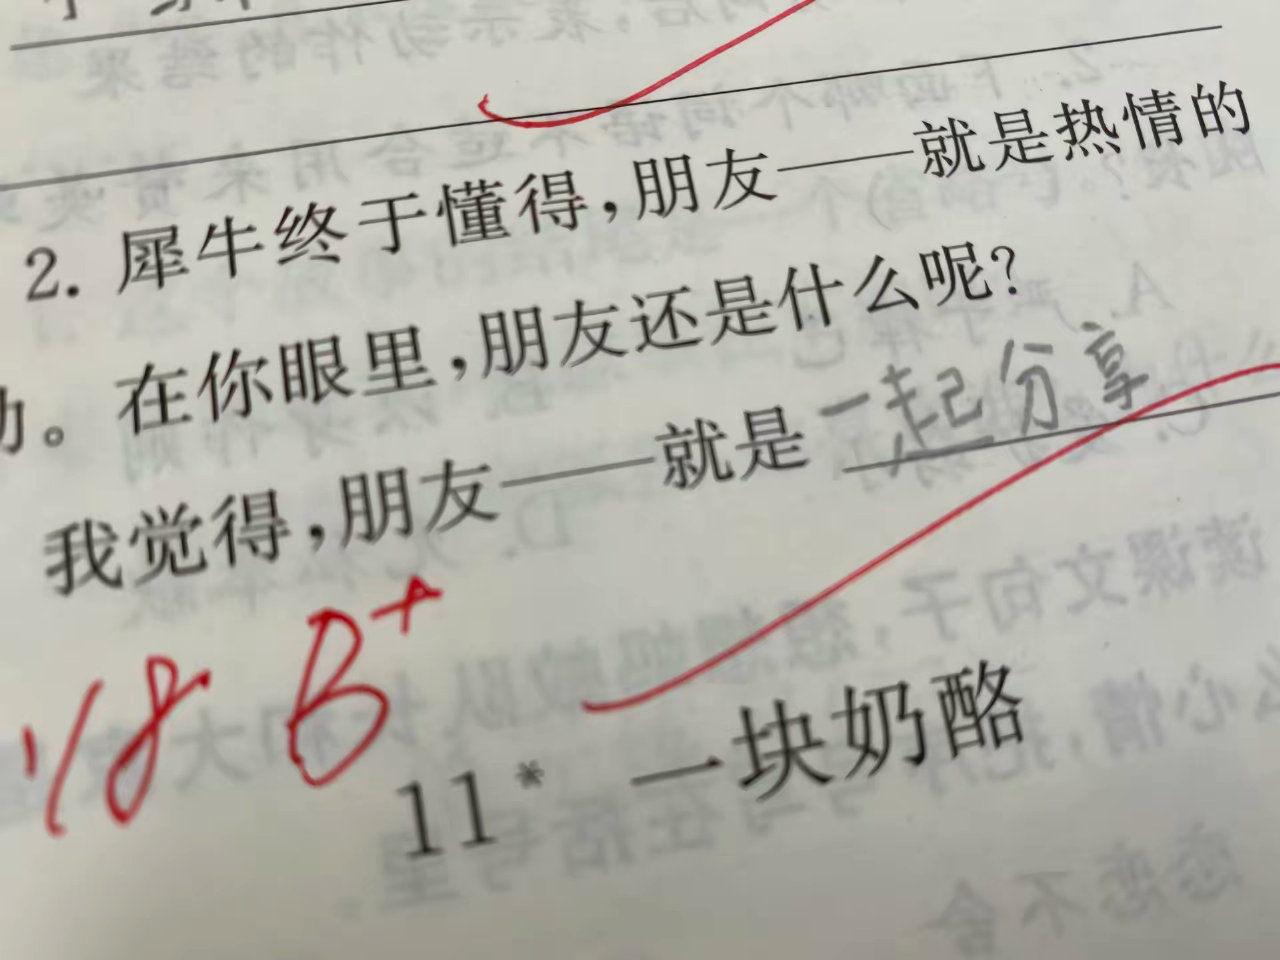 2. 犀牛终于懂得,朋友——就是热情的
动。在你眼里,朋友还是什么呢?
我觉得,朋友——就是 一起分享
1/8 B+
11* 一块奶酪